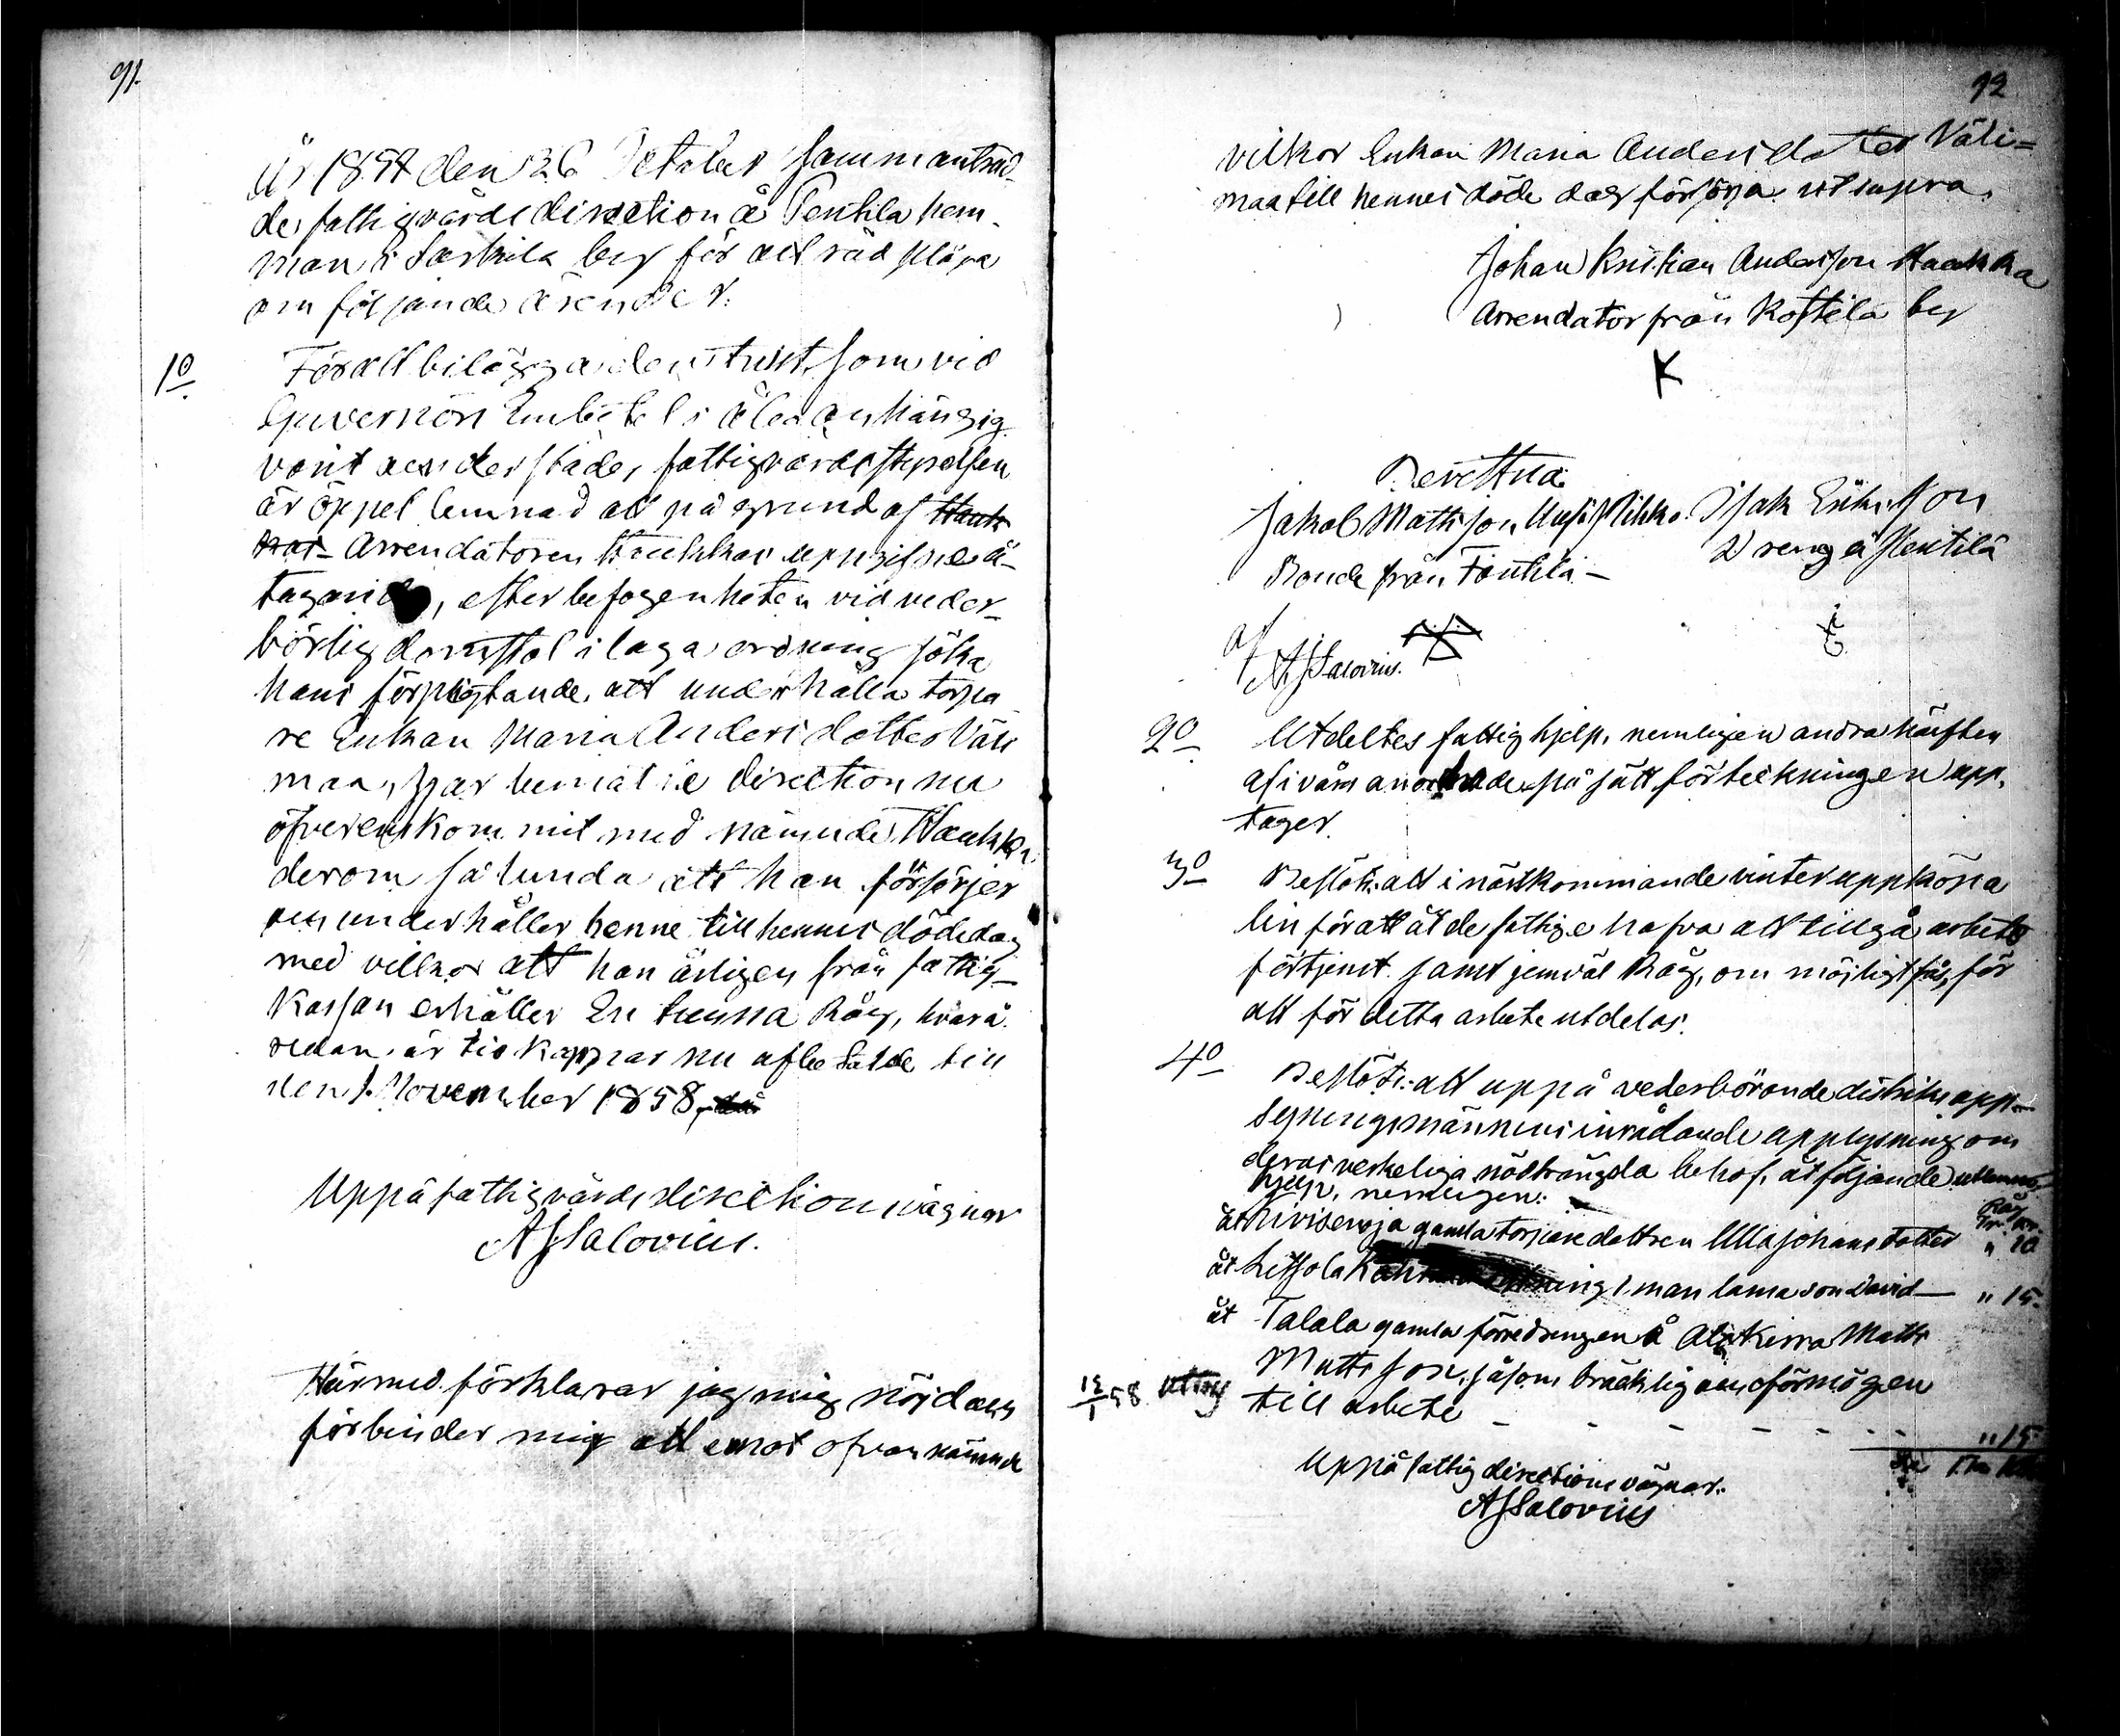 91.
År 1857 den 26 October sammanträd-
de, fattigvårds direction å Pentila hem-
man i Sarkila by för att råd pläga
om följande ärender:
1o För att bilägga den tvist, som vid
Guvernörs Embetet i Åbo anhängig
varit under städe, fattigvårdsstyrelsen
är öppet lemnad att på grund af Hauk
kas Arrendatoren Haukkas uppgifne å-
tagande, efter befogenheten vid veder-
börlig domstol i laga ordning söka
hans förpligtande, att underhålla torpa
re Enkan Maria Andersdotter Väli
maa, har bemälte direction nu
öfverenskommit med nämnde Haukka
derom sålunda att han försörjer
och underhåller henne till hennes dödedag
med villkor att han årligen från fattig-
Kassan erhåller En tunna Råg, hvarå
redan är tio kappar nu afbetalde till
den 1 November 1858, då
Uppå fattigvårds directions vägnar
A J Salovius.
Härmed förklarar jag mig nöjd och
förbinder mig att emot ofvannämnde
92
vilkor Enkan Maria Andersdotter Väli=
maa till hennes döde dag försörja. ut supra.
Johan Kristian Andersson Haukka
Arrendator från Kostila by
K
Bevittna:
Jakob Mattsson Isak Eriksson
Bonde från Tontila - Dreng å Pentilä
af
A J Salovius.
2o Utdeltes fattighjelp, nemligen andra hälften
af i våras anordnade på sätt förteckningen upp-
tager.
3o Beslöts: att i nästkommande vinter uppköpa
lin för att åt de fattige hafva att tillgå arbets
förtjenst samt jemväl Råg, om möjligt fås, för
att för detta arbete utdelas.
4o Beslöts: att uppå vederbörande distrikts upp-
syningsmännens inrådande upplysning om
deras verkeliga nödtrångda behof, åt följande utlemnas
hjelp, nemligen: Råg
Tr. Kr.
åt gamla torparedottren Ulla Johansdotter " 10
åt man lama son David — " 15.
åt Talala gamla förredrengen å Alakirra Matts
Mattsson, såsom bräcklig och oförmögen
12/1 58 uttog till arbete - - - - - - " 15
Uppå fattig directions vägnar.
A J Salovius